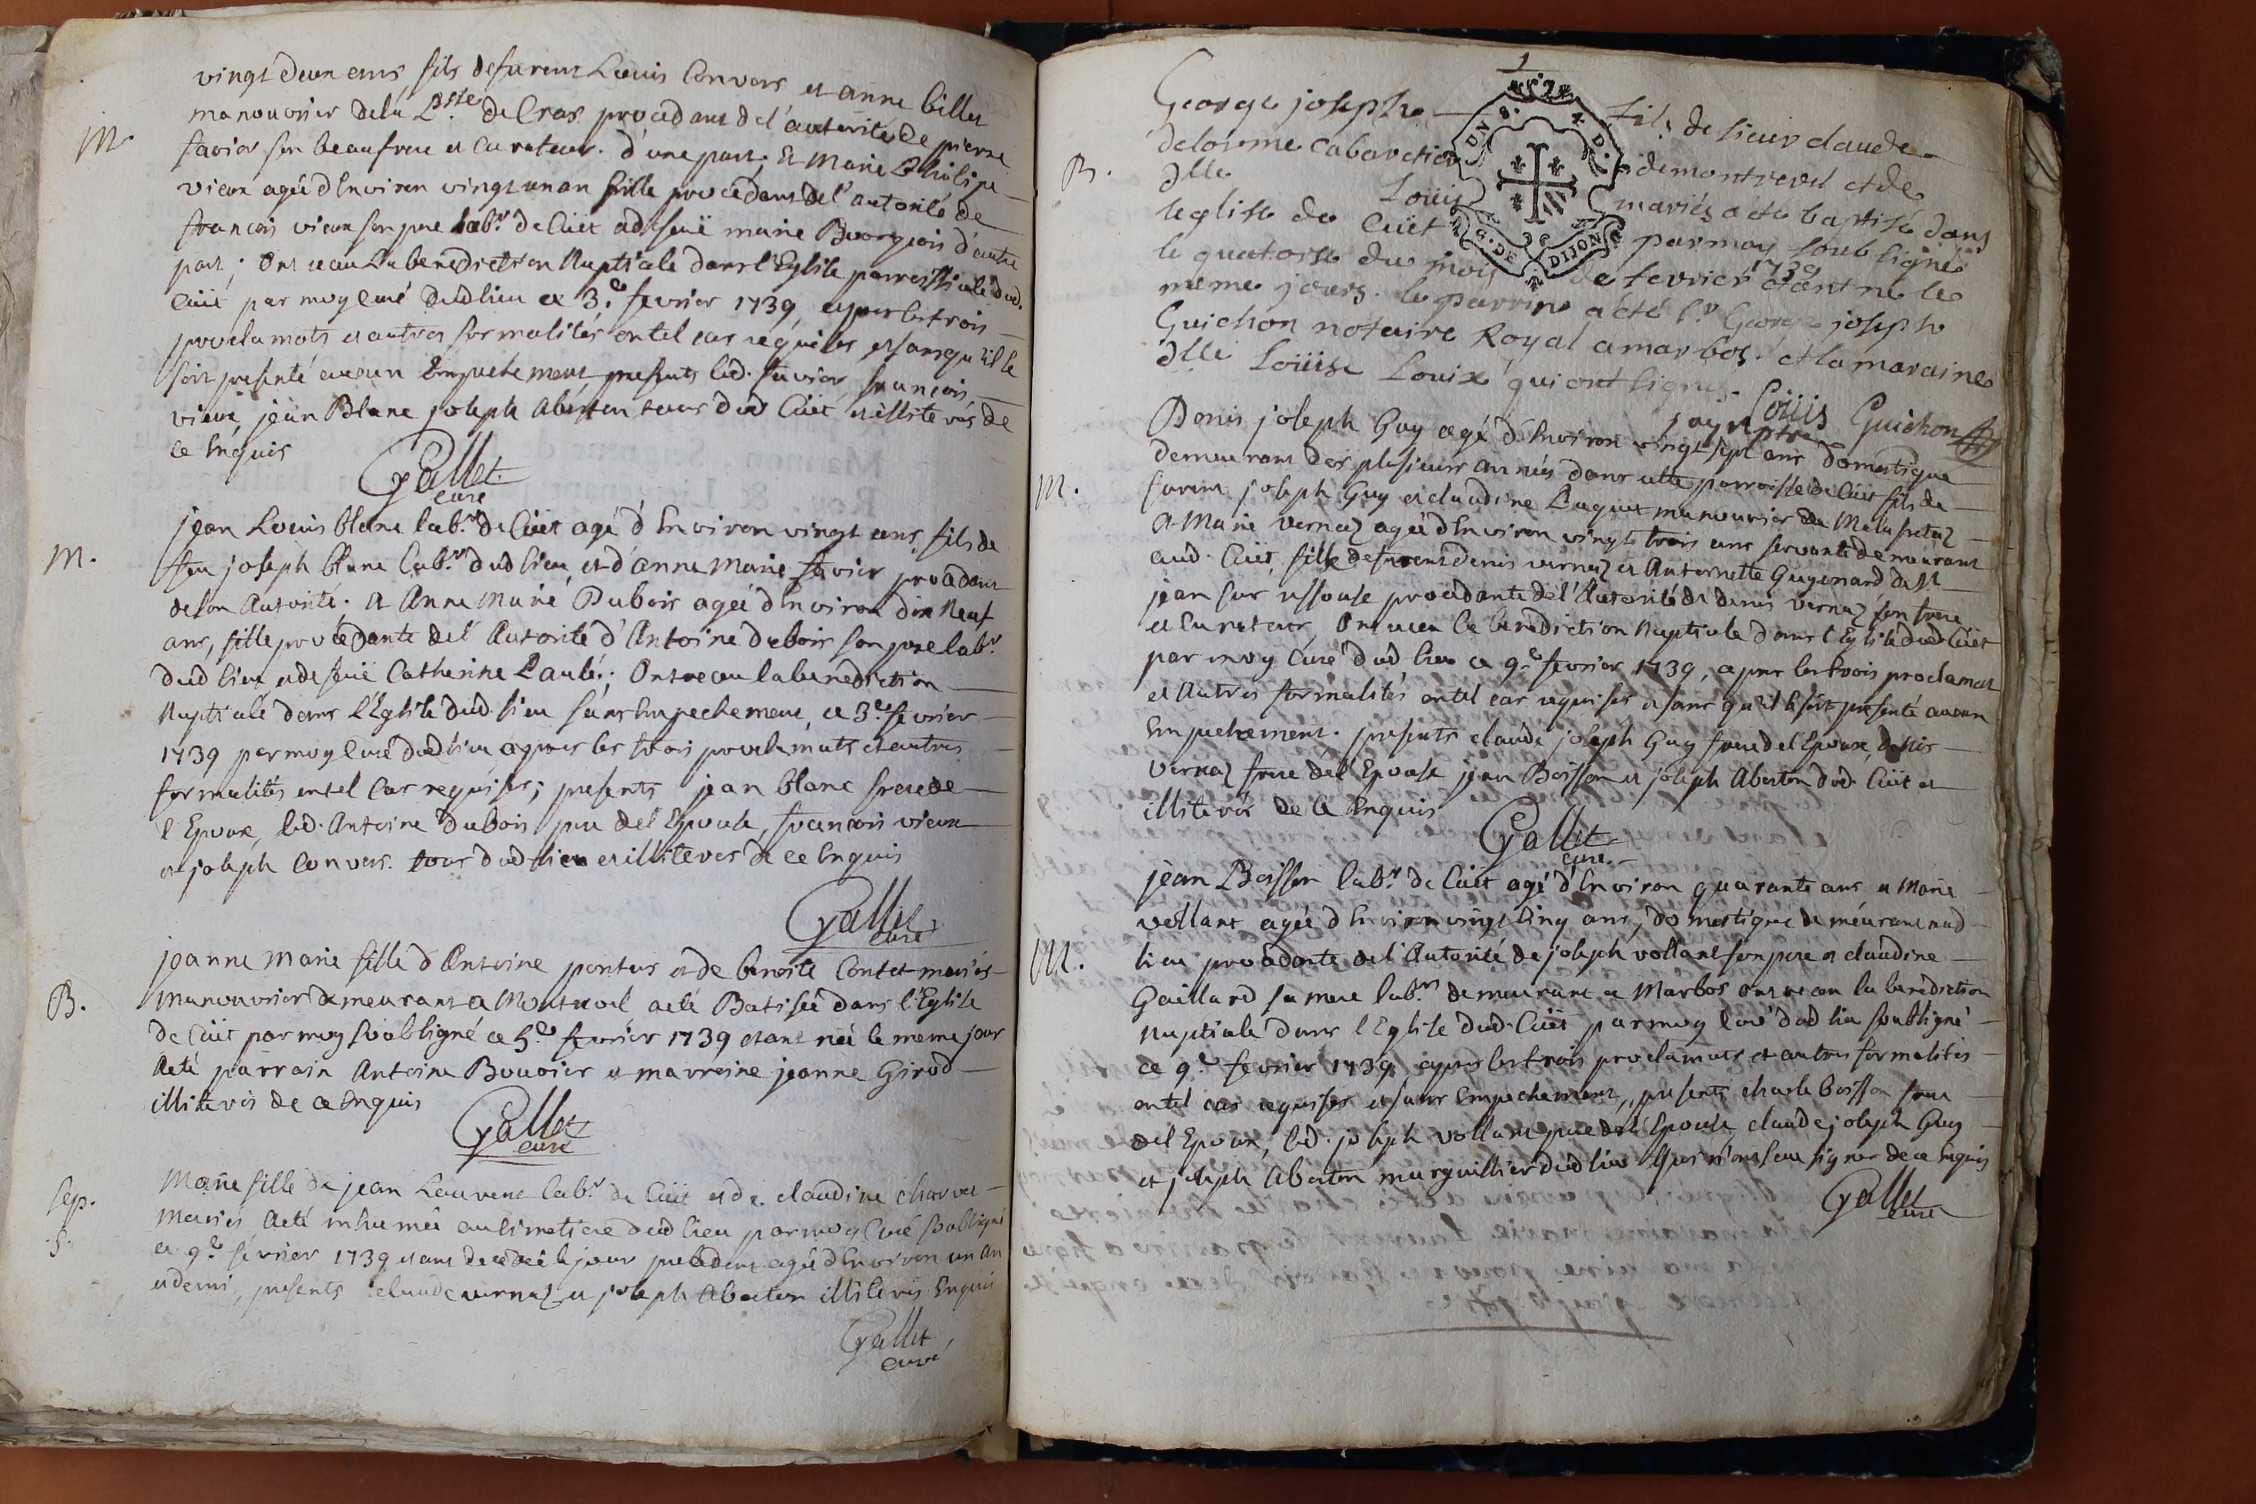 vingt deux ans, fils de furent Louis Convers et anne billet
manouvrier de la P.sse de Cras procedant de l'autorité de pierre
favier son beaufrere et curateur. d'une part, Et Marie Philipe
M.
vieux agée d'Environ vingt un an fille procedant de l'autorité de
francois vieux son pere lab.r de Cüet et de feuë marie Bourgeois d'autre
part; Ont receu la benediction Nuptiale dans l'Eglise parroissiale dud.
Cüet par moy curé dud lieu ce 3.e fevrier 1739, apres les trois
proclamats et autres formalités en tel cas requises et sans qu'il se
soit presenté aucun Empechement presents led. favier, francois
vieux, jean Blanc joseph Aberton tous dud Cüet et illiterés de
ce Enquis
Gallet
curé
jean Louis blanc lab.r de Cüet agé d'Environ vingt ans, fils de
M.
feu joseph blanc lab.r dud lieu, et d'anne Marie favier procedant
de son Autorité. et Anne Marie Dubois agée d'Environ dix Neuf
ans, fille procedante de l'Autorité d'Antoine dubois son pere lab.r
dud lieu et de feuë Catherine Paubé; Ont receu la benediction
Nuptiale dans l'Eglise dud. lieu sans Empechement, ce 3.e fevrier
1739 par moy curé dud lieu, apres les trois proclamats et autres
formalités en tel cas requises; presents jean blanc frere de
l'Epoux, led. Antoine dubois pere de l'Epouse, francois vieux
et joseph Convers. tous dud lieu et illiterés de ce Enquis
Gallet
curé
jeanne Marie fille d'Antoine pontus et de benoite Contet mariés
B.
manouvrier demeurant a Montrevel, a eté Batisée dans l'Eglise
de Cüet par moy soubsigné ce 5.e fevrier 1739 etant née le meme jour
a eté parrain Antoine Bouvier et marreine jeanne Girod
illiterés de ce Enquis
Gallet
curé
Marie fille de jean Laurent lab.r de Cüet et de claudine charvet
Sep.
mariés a eté inhumée au cimetiere dud lieu par moy curé soubsigné
.S.
ce 9.e fevrier 1739 etant decedée le jour precedent agée d'Environ un an
et demi, presents claude vernaz et joseph Aberton illiterés Enquis
Gallet
curé
1
George joseph fils de sieur claude
delorme cabaretier de montrevel et de
B.
dlle Loüis mariés a eté baptisé dans
leglise de Cüet par moy soub signé
le quatorse du mois de fevrier 1739 etant né le
meme jours. le parrin a été s.r George joseph
Guichon notaire Royal a marbos. et la maraine
dlle Loüise Louix qui ont signés.
DVN S. 4. D.
G. DE DIJON
Loüis Guichon
Denis joseph Guy agé d'Environ vingt sept ans domestique
demeurant des plusieurs années dans cette parroisse de Cüet fils de
M.
furent joseph Guy et claudine Puquet manouvrier de Malafretaz
et Marie vernaz agée d'Environ vingt trois ans servante demeurant
aud. Cüet, fille de furent denis vernaz et Antoinette Guyennard de st
jean sur ressouse procedante de l'Autorité de denis vernaz son frere
et curateur, Ont receu la benediction Nuptiale dans l'Eglise dud Cüet
par moy curé dud lieu ce 9.e fevrier 1739, apres les trois proclamats
et Autres formalités en tel cas requises et sans qu'il se soit presenté aucun
Empechement. presents claude joseph Guy frere de l'Epoux, denis
vernaz frere de l'Epouse jean Boisson et joseph Aberton dud. Cüet et
illiterés de ce Enquis
Gallet
curé
jean Boisson lab.r de Cüet agé d'Environ quarante ans et Marie
vollant agée d'Environ vingt cinq ans, domestique demeurant aud
M.
lieu procedante de l'Autorité de joseph vollant son pere et claudine
Gaillard sa mere lab.rs demeurant a Marbos ont receu la benediction
Nuptiale dans l'Eglise dud. Cüet par moy curé dud lieu soubsigné
ce 9.e fevrier 1739 apres les trois proclamats et autres formalités
en tel cas requises et sans Empechement, presents charle boisson frere
de l'Epoux, led. joseph vollant pere de l'Epouse, claude joseph Guy
et joseph Aberton marguillier dud lieu qui n'ont sceu signer de ce Enquis
Gallet
curé